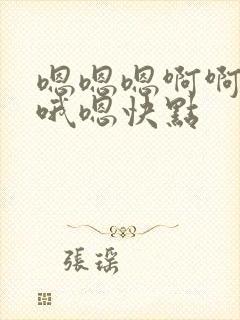 嗯嗯嗯啊啊
哦嗯快點
張瑤